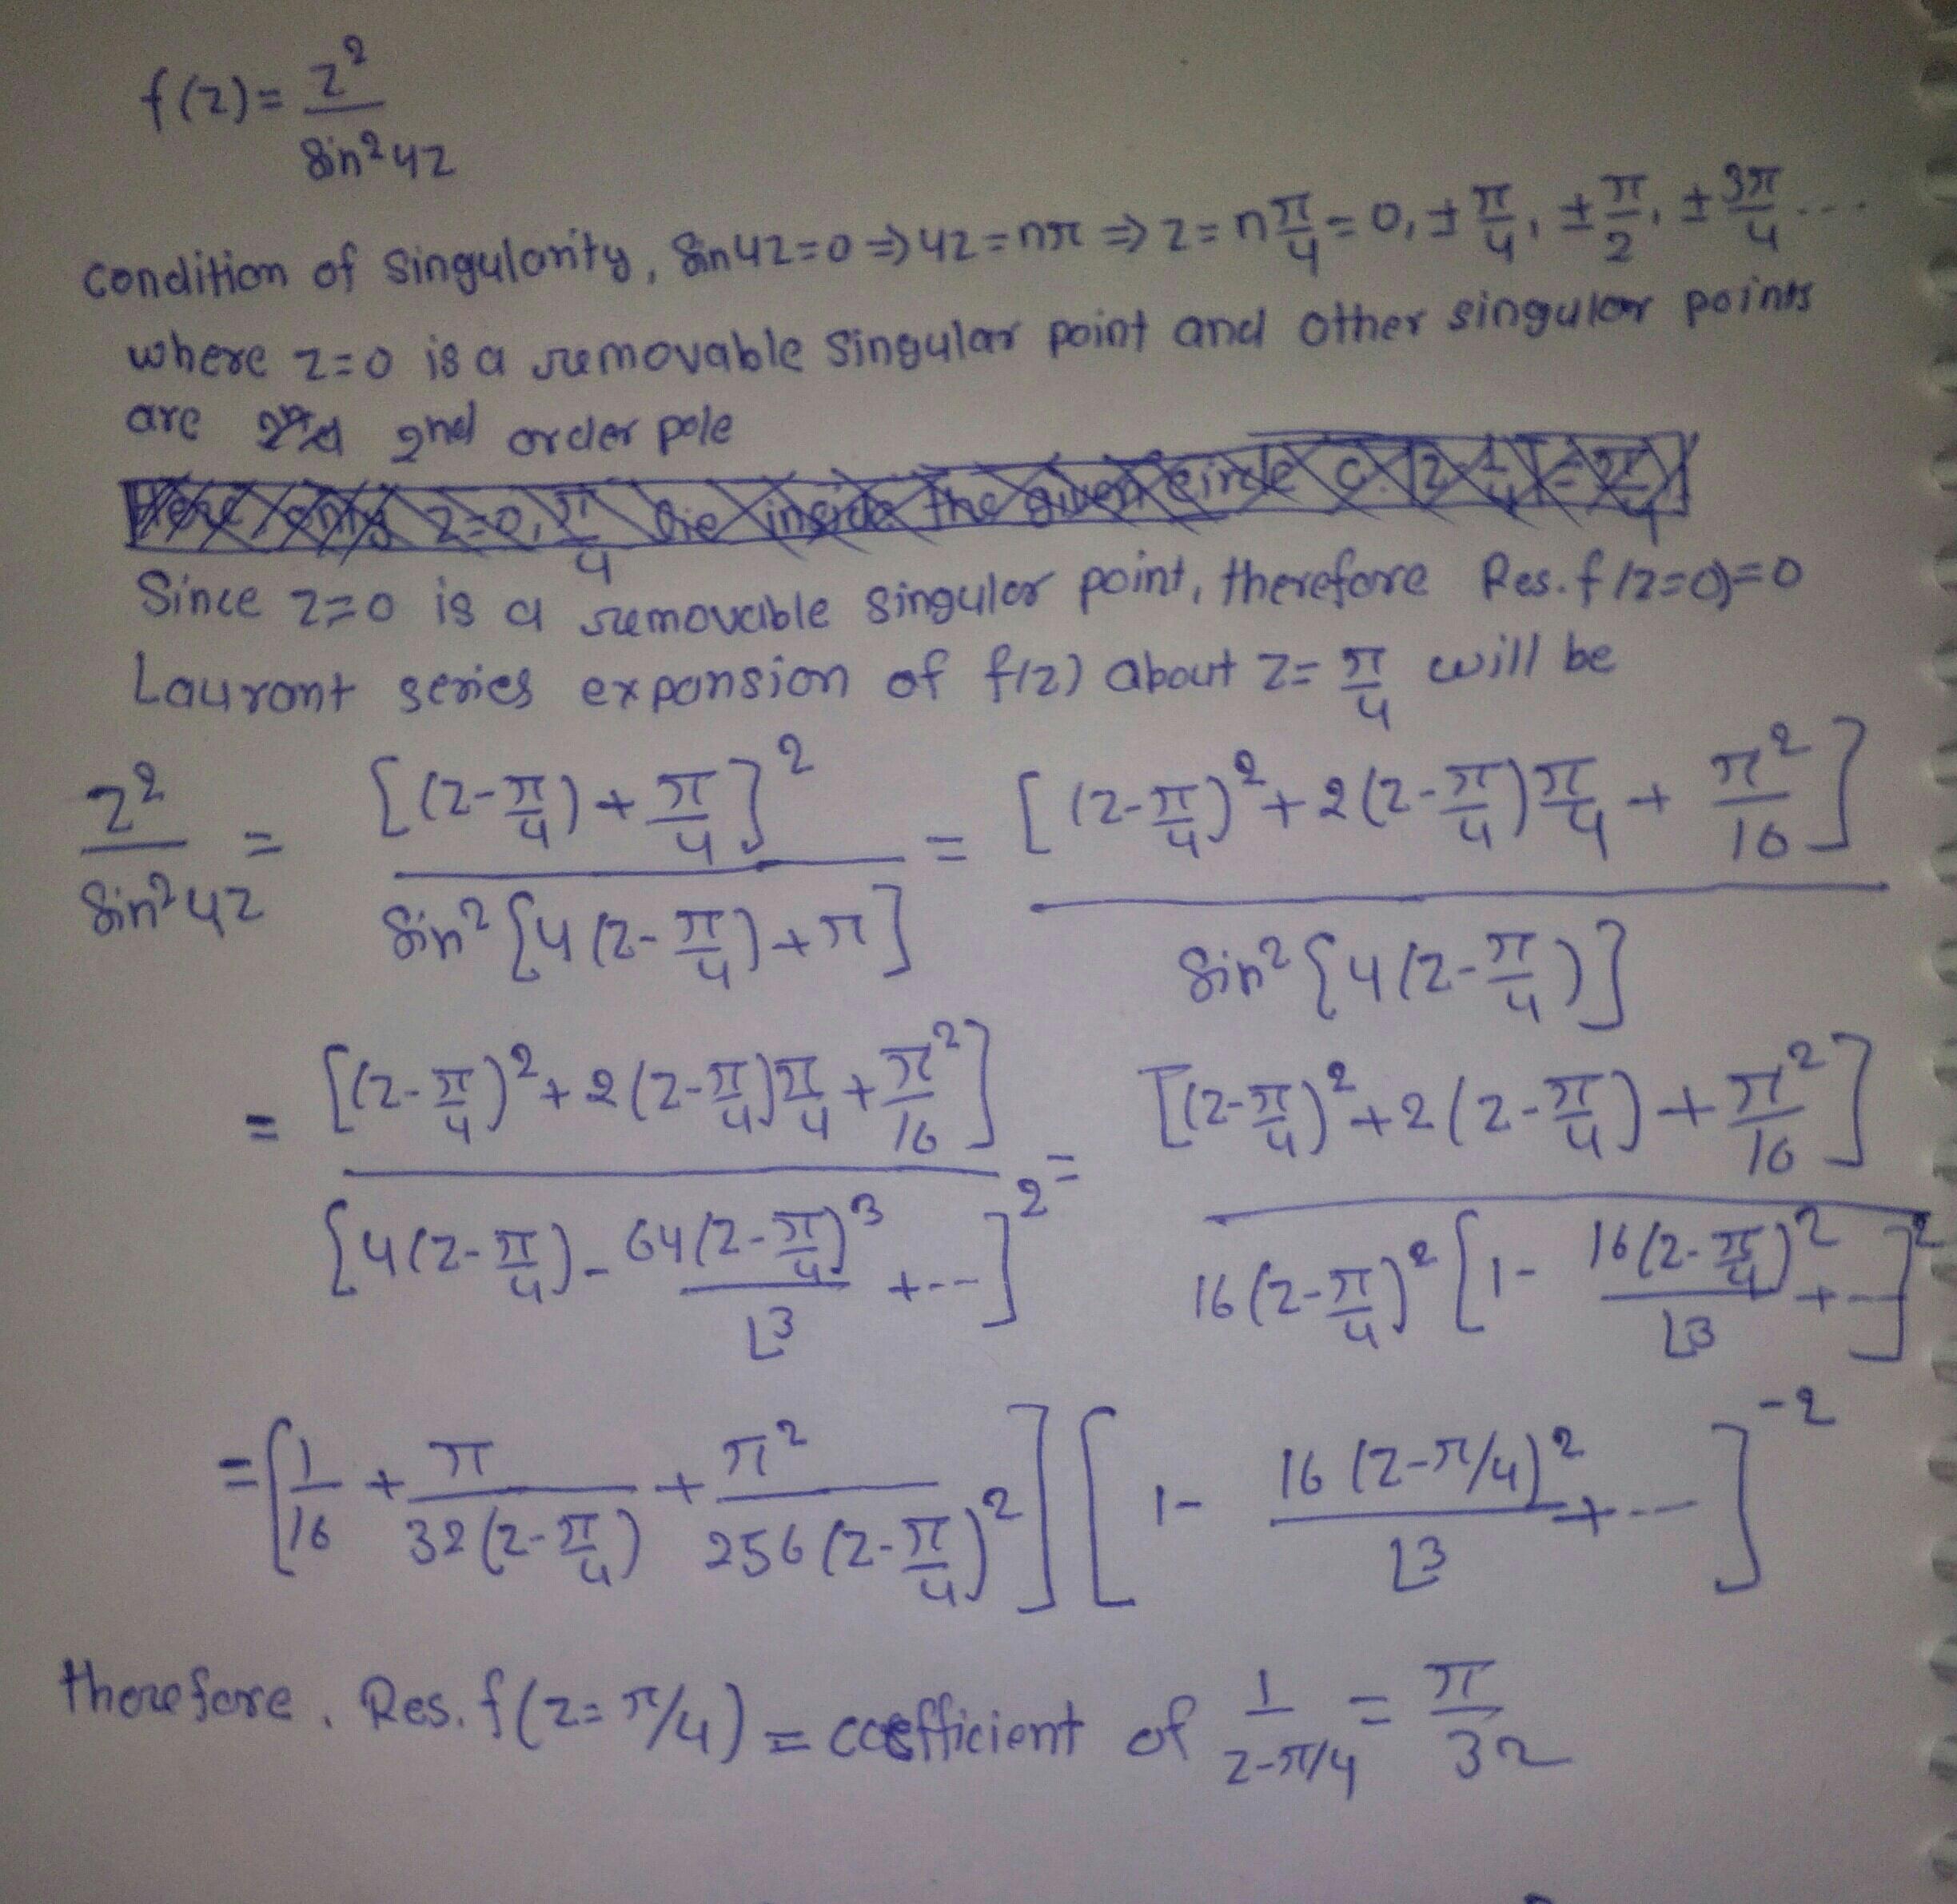 f(z) = z² / sin²4z
condition of singularity, sin4z=0 ⇒ 4z=nπ ⇒ z=nπ/4 = 0, ±π/4, ±π/2, ±3π/4 ...
where z=0 is a removable singular point and other singular points
are 2nd order pole
Here only z=0, π/4 lie inside the given circle C:
Since z=0 is a removable singular point, therefore Res. f(z=0)=0
Laurant series expansion of f(z) about z=π/4 will be
z²/sin²4z = [(z-π/4)+π/4]² / sin²{4(z-π/4)+π} = [(z-π/4)²+2(z-π/4)π/4+π²/16] / sin²{4(z-π/4)}
= [(z-π/4)²+2(z-π/4)π/4+π²/16] / {4(z-π/4)-64(z-π/4)³/⌊3+---}² = [(z-π/4)²+2(z-π/4)+π²/16] / 16(z-π/4)²[1-16(z-π/4)²/⌊3+---]²
= [1/16+π/32(z-π/4)+π²/256(z-π/4)²][1-16(z-π/4)²/⌊3+---]⁻²
therefore, Res. f(z=π/4) = coefficient of 1/z-π/4 = π/32